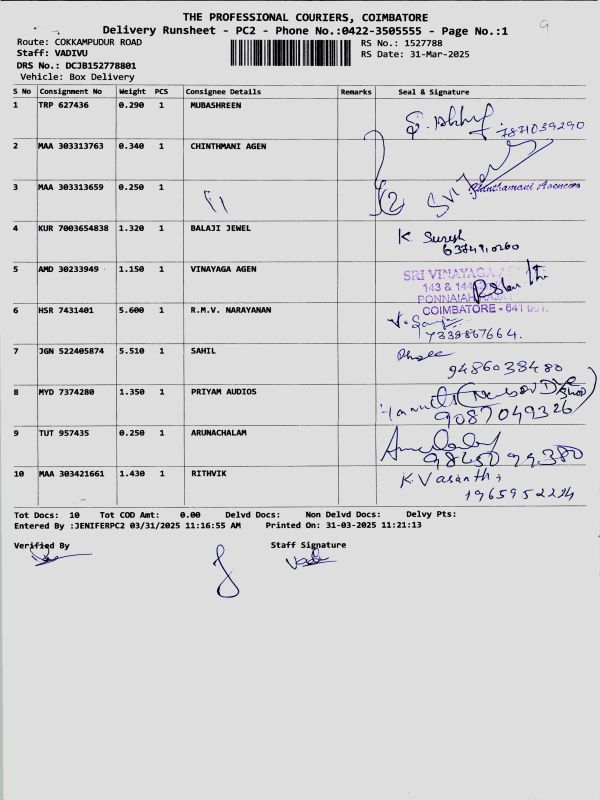 THE PROFESSIONAL COURIERS, COIMBATORE
9
Delivery Runsheet - PC2 - Phone No.:0422-3505555 - Page No.:1
Route: COKKAMPUDUR ROAD RS No.: 1527788
Staff: VADIVU RS Date: 31-Mar-2025
DRS No.: DCJB152778801
Vehicle: Box Delivery
S No Consignment No Weight PCS Consignee Details Remarks Seal & Signature
1 TRP 627436 0.290 1 MUBASHREEN
7871039290
2 MAA 303313763 0.340 1 CHINTHMANI AGEN
3 MAA 303313659 0.250 1 Chinthamani Agencies
4 KUR 7003654838 1.320 1 BALAJI JEWEL K. Suresh
5 AMD 30233949 1.150 1 VINAYAGA AGEN SRI VINAYAGA
143 &
PONNAIAH
6 HSR 7431401 5.600 1 R.M.V. NARAYANAN COIMBATORE - 641 001.
7339867664.
7 JGN 522405874 5.510 1 SAHIL
9486038480
8 MYD 7374280 1.350 1 PRIYAM AUDIOS
9087049326
9 TUT 957435 0.250 1 ARUNACHALAM
10 MAA 303421661 1.430 1 RITHVIK K. Vasanth
Tot Docs: 10 Tot COD Amt: 0.00 Delvd Docs: Non Delvd Docs: Delvy Pts:
Entered By :JENIFERPC2 03/31/2025 11:16:55 AM Printed On: 31-03-2025 11:21:13
Verified By Staff Signature